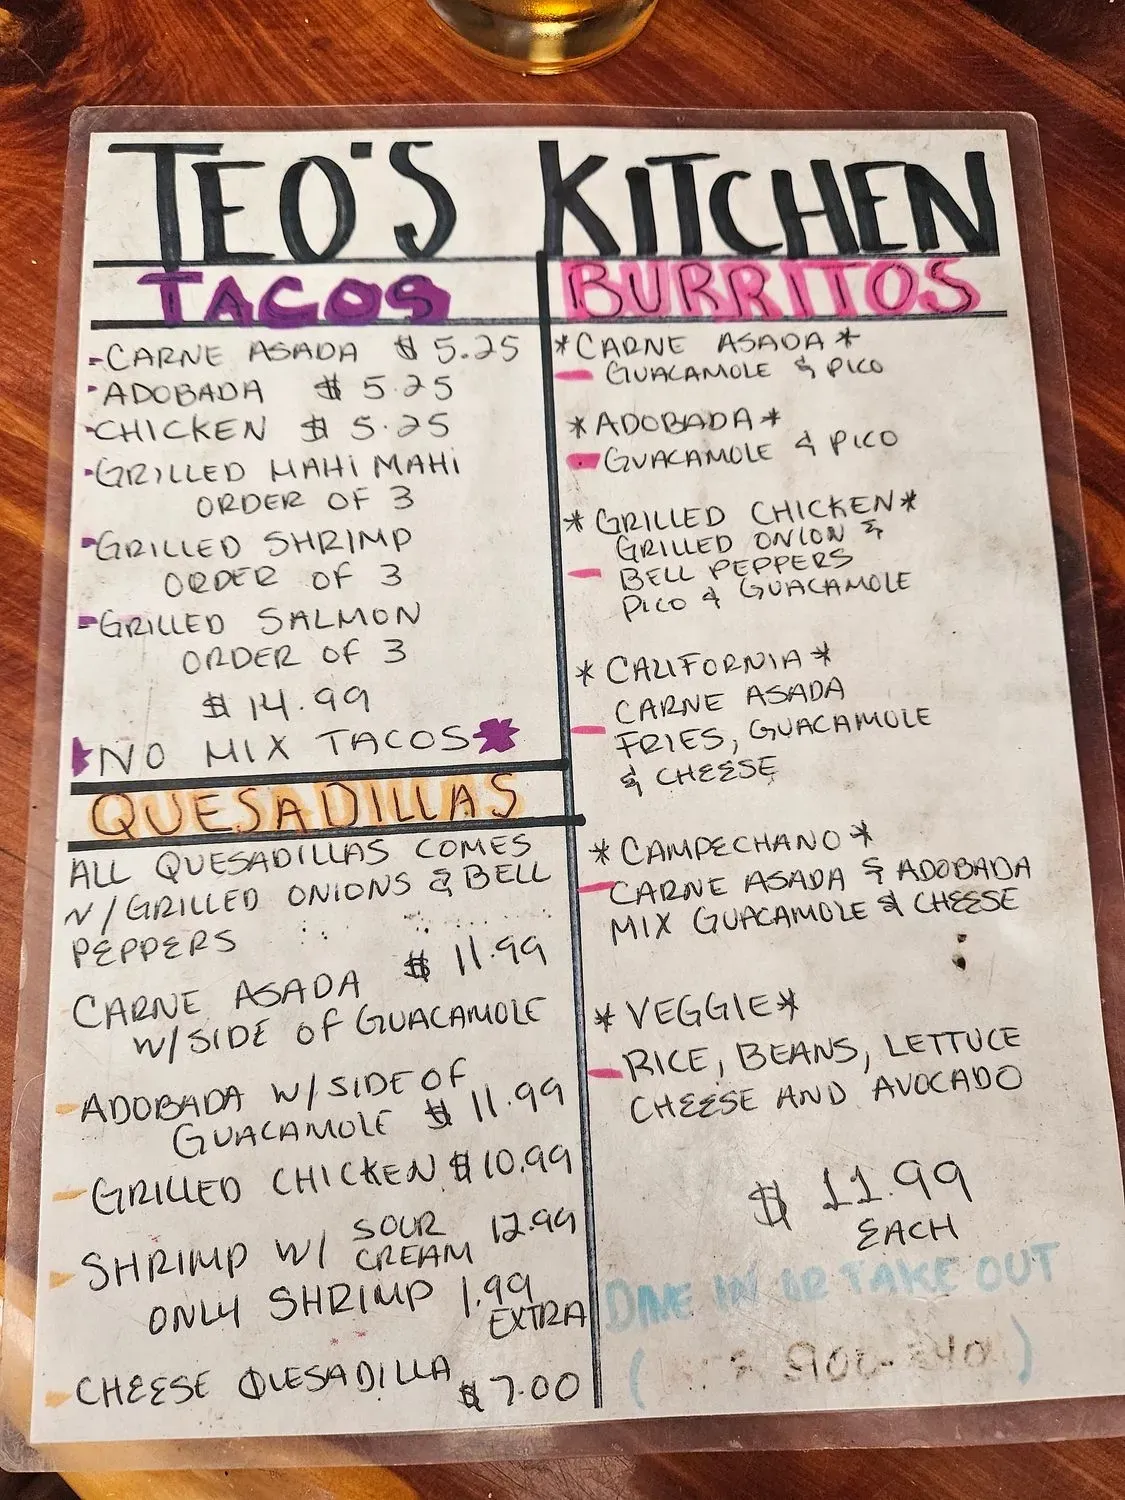 TEO'S KITCHEN
TACOS
-CARNE ASADA $5.25
-ADOBADA $5.25
-CHICKEN $5.25
-GRILLED MAHI MAHI
ORDER OF 3
-GRILLED SHRIMP
ORDER OF 3
-GRILLED SALMON
ORDER OF 3
$14.99
NO MIX TACOS
QUESADILLAS
ALL QUESADILLAS COMES
W/GRILLED ONIONS & BELL
PEPPERS
CARNE ASADA $11.99
W/SIDE OF GUACAMOLE
-ADOBADA W/SIDE OF
GUACAMOLE $11.99
-GRILLED CHICKEN $10.99
-SHRIMP W/ SOUR CREAM 12.99
ONLY SHRIMP 1.99
EXTRA
-CHEESE QUESADILLA $7.00
BURRITOS
*CARNE ASADA*
- GUACAMOLE & PICO
*ADOBADA*
-GUACAMOLE & PICO
*GRILLED CHICKEN*
GRILLED ONION &
- BELL PEPPERS
PICO & GUACAMOLE
*CALIFORNIA*
CARNE ASADA
- FRIES, GUACAMOLE
& CHEESE
*CAMPECHANO*
-CARNE ASADA & ADOBADA
MIX GUACAMOLE & CHEESE
*VEGGIE*
-RICE, BEANS, LETTUCE
CHEESE AND AVOCADO
$11.99
EACH
DINE IN OR TAKE OUT